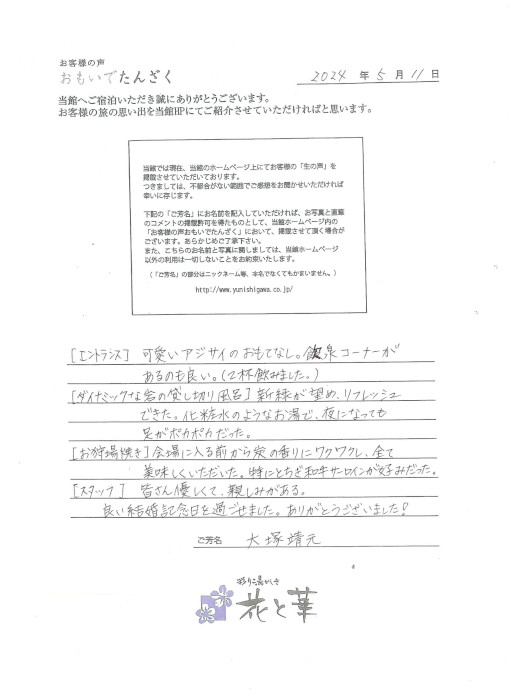 お客様の声
おもいでたんざく
2024 年 5 月 11 日
当館へご宿泊いただき誠にありがとうございます。
お客様の旅の思い出を当館HPにてご紹介させていただければと思います。
当館では現在、当館のホームページ上にてお客様の「生の声」を
掲載させていただいております。
つきましては、不都合がない範囲でご感想をお聞かせいただければ
幸いに存じます。
下記の「ご芳名」にお名前を記入していただければ、お写真と直筆
のコメントの掲載許可を得たものとして、当館ホームページ内の
「お客様の声おもいでたんざく」において、掲載させて頂く場合が
ございます。あらかじめご了承下さい。
また、こちらのお名前と写真に関しましては、当館ホームページ
以外の利用は一切しないことをお約束いたします。
(「ご芳名」の部分はニックネーム等、本名でなくてもかまいません。)
http://www.yunishigawa.co.jp/
[エントランス] 可愛いアジサイのおもてなし。飲泉コーナーが
あるのも良い。(2杯飲みました。)
[ダイナミックな岩の貸し切り風呂] 新緑が望め、リフレッシュ
できた。化粧水のようなお湯で、夜になっても
足がポカポカだった。
[お狩場焼き] 会場に入る前から炭の香りにワクワクし、全て
美味しくいただいた。特にとちぎ和牛サーロインが好みだった。
[スタッフ] 皆さん優しくて、親しみがある。
良い結婚記念日を過ごせました。ありがとうございました!
ご芳名 大塚靖元
彩り湯かしき
花と華